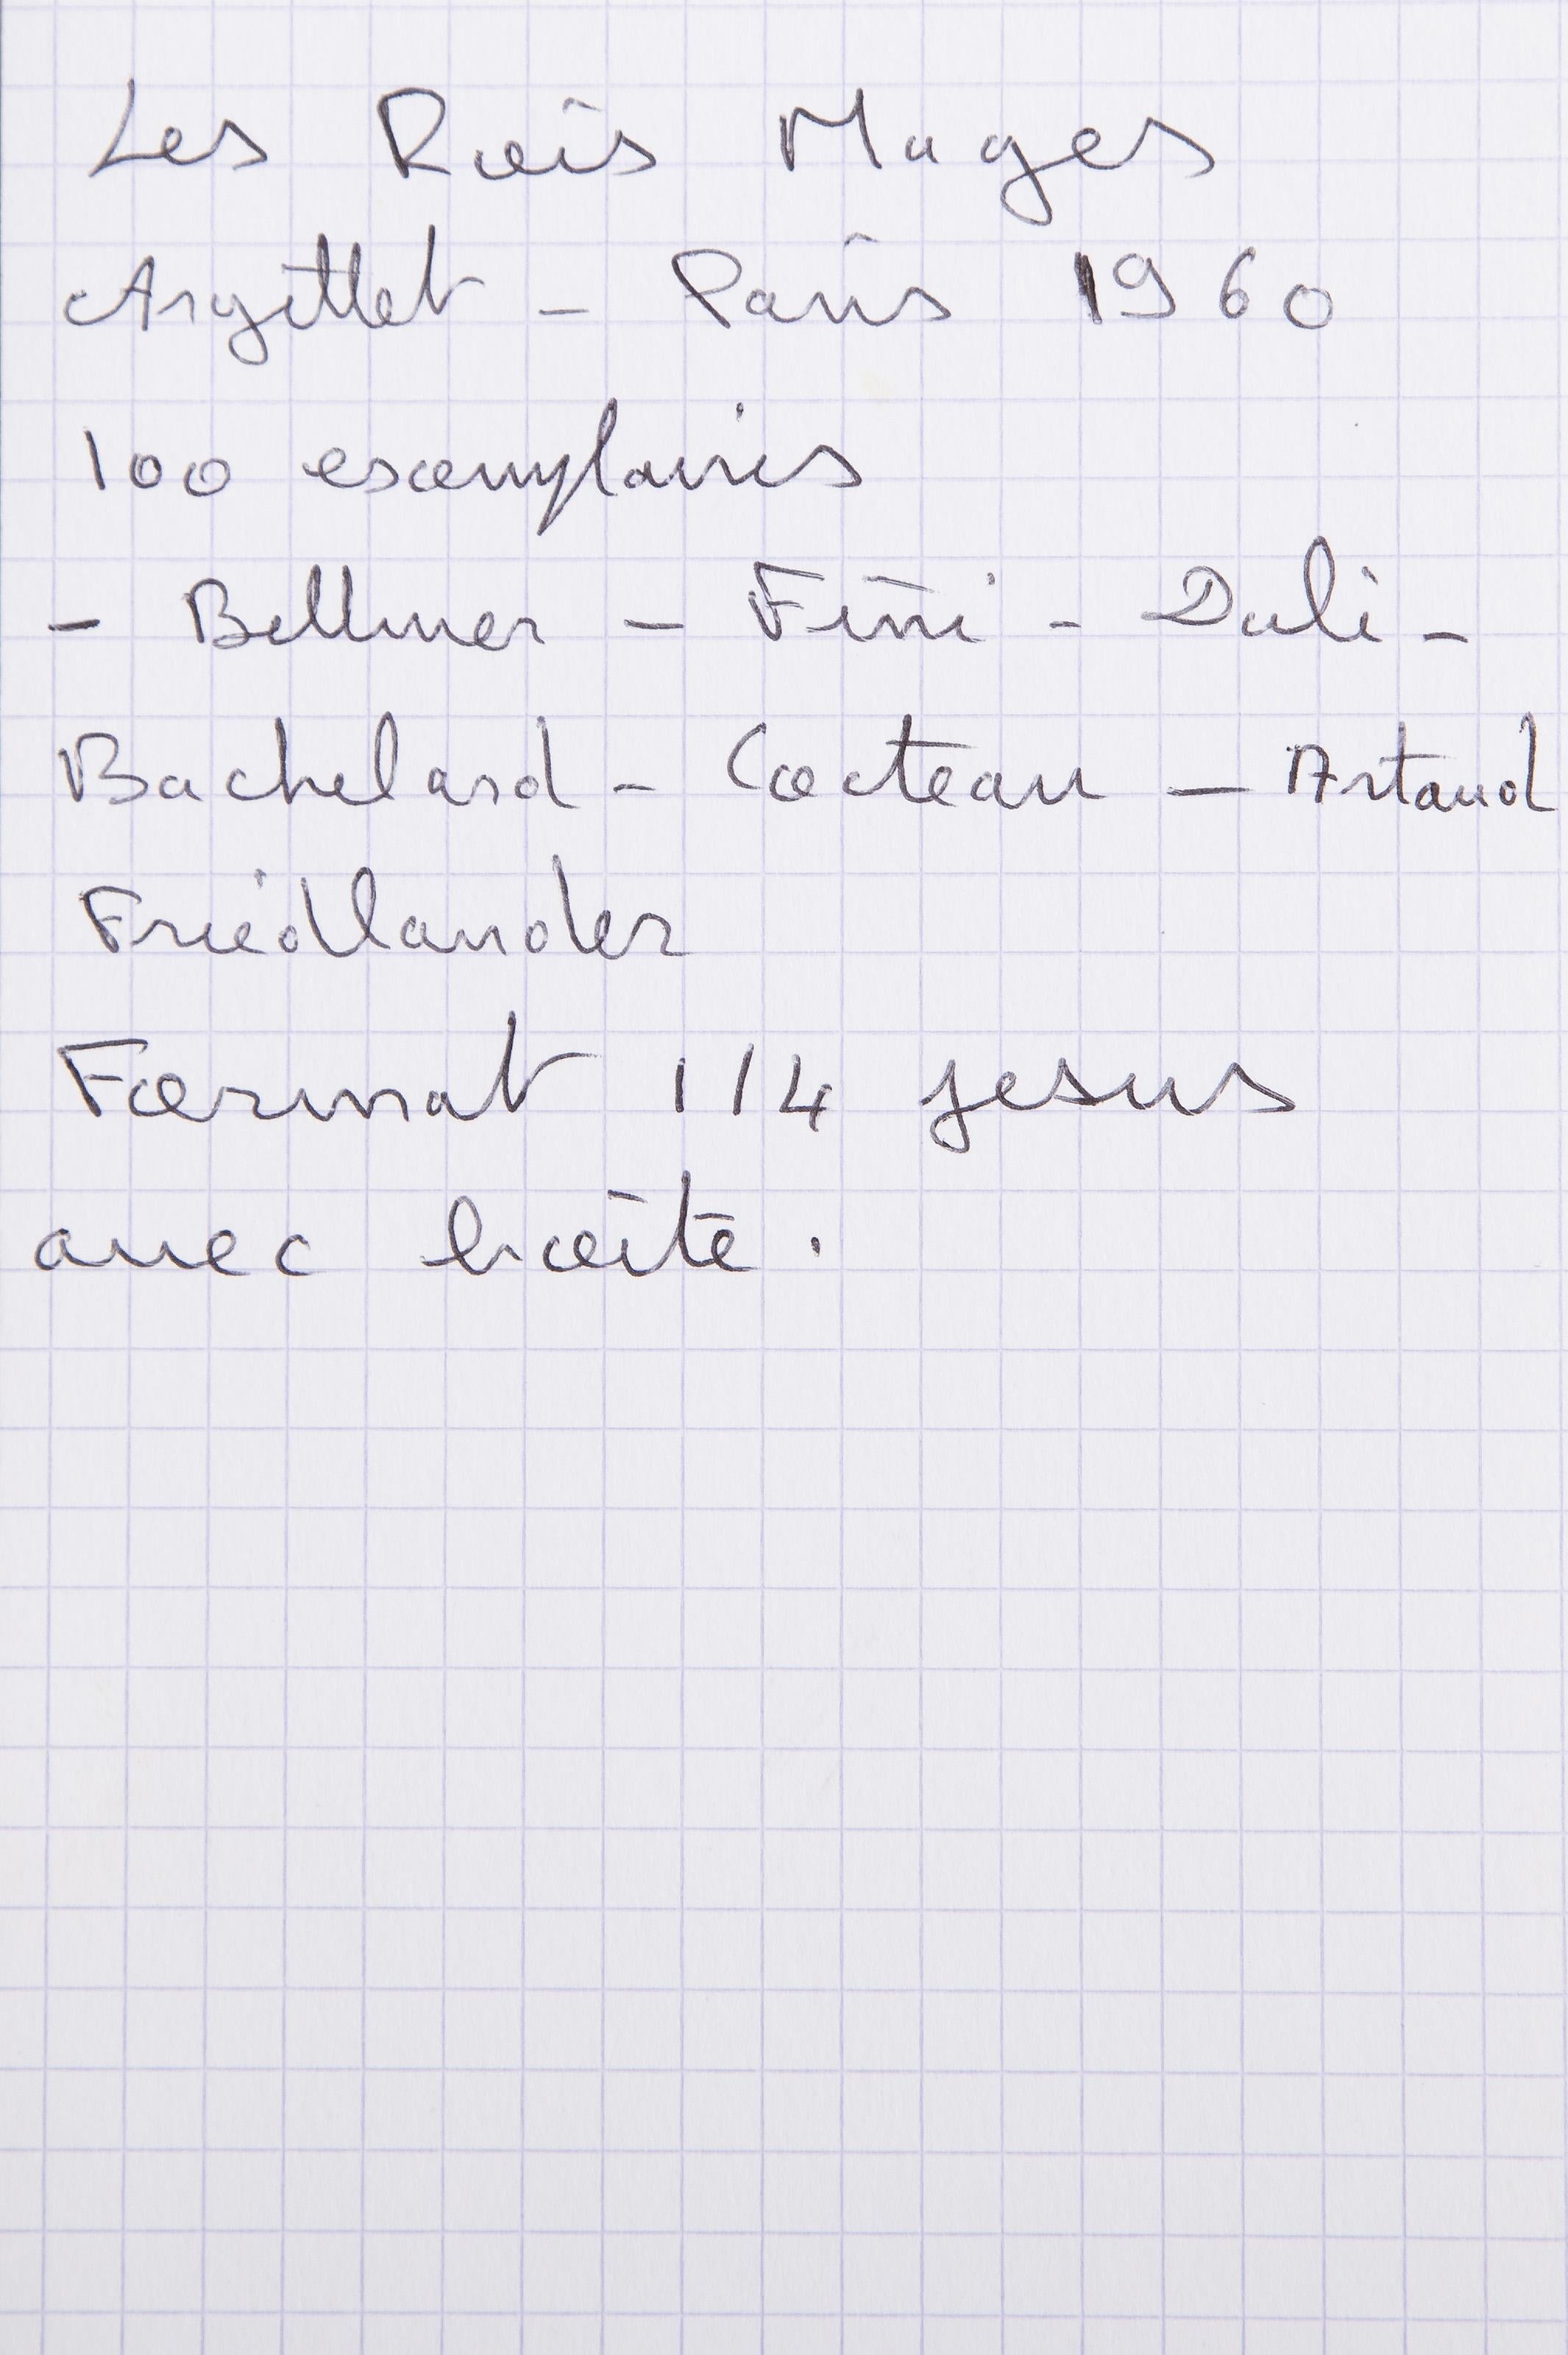 Les Rois Mages
Argillet - Paris 1960
100 exemplaires
- Bellmer - Fini - Dali -
Bachelard - Cocteau - Artaud
Friedlander
Format 1/4 jesus
avec boîte.